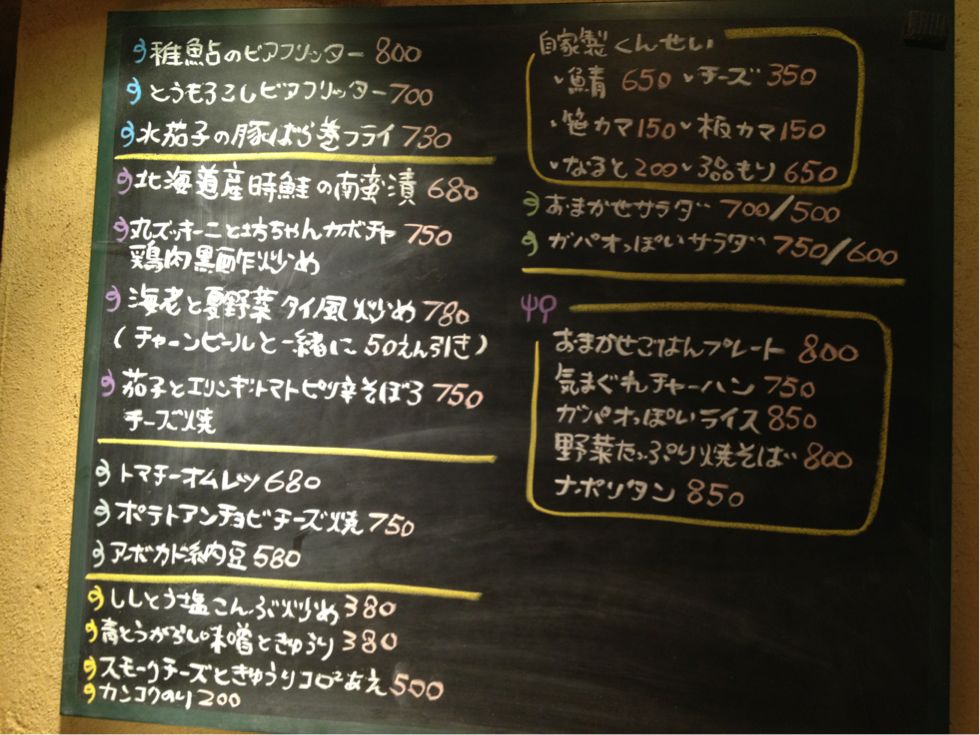 稚鮎のビアフリッター 800
とうもろこしビアフリッター 700
水茄子の豚ばら巻フライ 730
北海道産時鮭の南蛮漬 680
丸ズッキーニと坊ちゃんカボチャ 750
鶏肉黒酢炒め
海老と夏野菜タイ風炒め 780
(チャーンビールと一緒に50えん引き)
茄子とエリンギ・トマトピリ辛そぼろ 750
チーズ焼
トマチーオムレツ 680
ポテトアンチョビチーズ焼 750
アボカド納豆 580
ししとう塩こんぶ炒め 380
青とうがらし味噌ときゅうり 380
スモークチーズときゅうりコロコロあえ 500
カンコクのり 200
自家製くんせい
鯖 650 チーズ 350
笹カマ 150 板カマ 150
なると 200 3品もり 650
おまかせサラダ 700/500
ガパオっぽいサラダ 750/600
おまかせごはんプレート 800
気まぐれチャーハン 750
ガパオっぽいライス 850
野菜たっぷり焼そば 800
ナポリタン 850